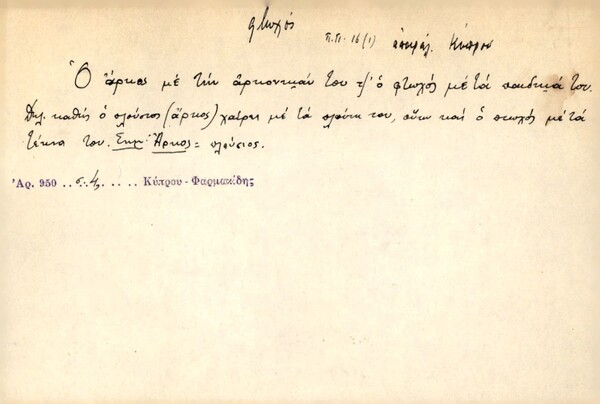 φτωχός
Π.Π. 16(1) Κύπρου
Ὁ ἄρκος μέ τήν ἀρκοντκιάν του τζ' ὁ φτωχός μέ τά παιδκιά του.
Δηλ. καθώς ὁ πλούσιος (ἄρκος) χαίρει μέ τά πλούτη του, οὕτω καί ὁ πτωχός μέ τά
τέκνα του. Σημ. Ἄρκος = πλούσιος.
Ἀρ. 950 .. σ. 4, .. .. Κύπρου - Φαρμακίδης